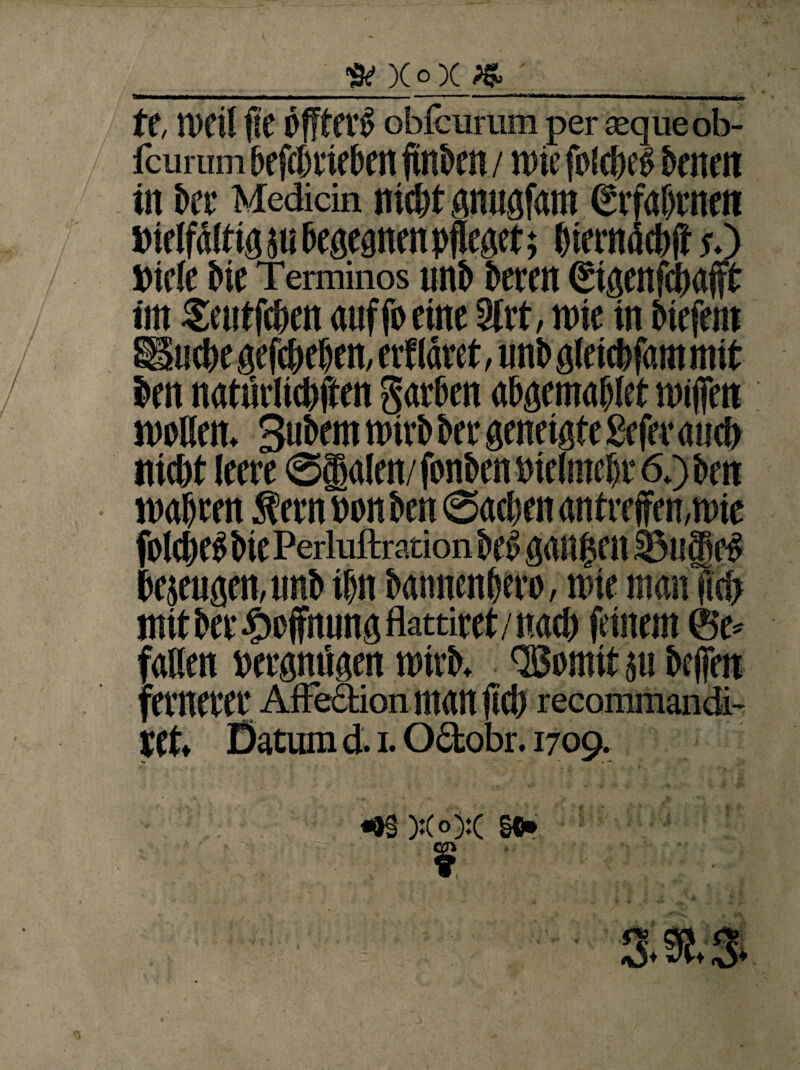 )( o )(
te, weil sie öffters obscurum per æque ob-
scurum beschrieben finden / wie solches denen
in der Medicin nicht gnugsam Erfahrnen
vielfältig zu begegnen pfleget; hiernächst 5.)
viele die Terminos und deren Eigenschafft
im Teutschen auf so eine Art, wie in diesem
Buche geschehen, erkläret, und gleichsam mit
den natürlichsten Farben abgemahlet wissen
wollen. Zudem wird der geneigte Leser auch
nicht leere Schalen/ sonden vielmehr 6.) den
wahren Kern von den Sachen antreffen, wie
solches die Perlustration des gantzen Buches
bezeugen, und ihn dannenhero, wie man sich
mit der Hoffnung flattiret / nach seinem Ge-
fallen vergnügen wird. Womit zu dessen
fernerer Affection man sich recommandi-
ret. Datum d. 1. Octobr. 1709.
):( o ):(
J. N. J.